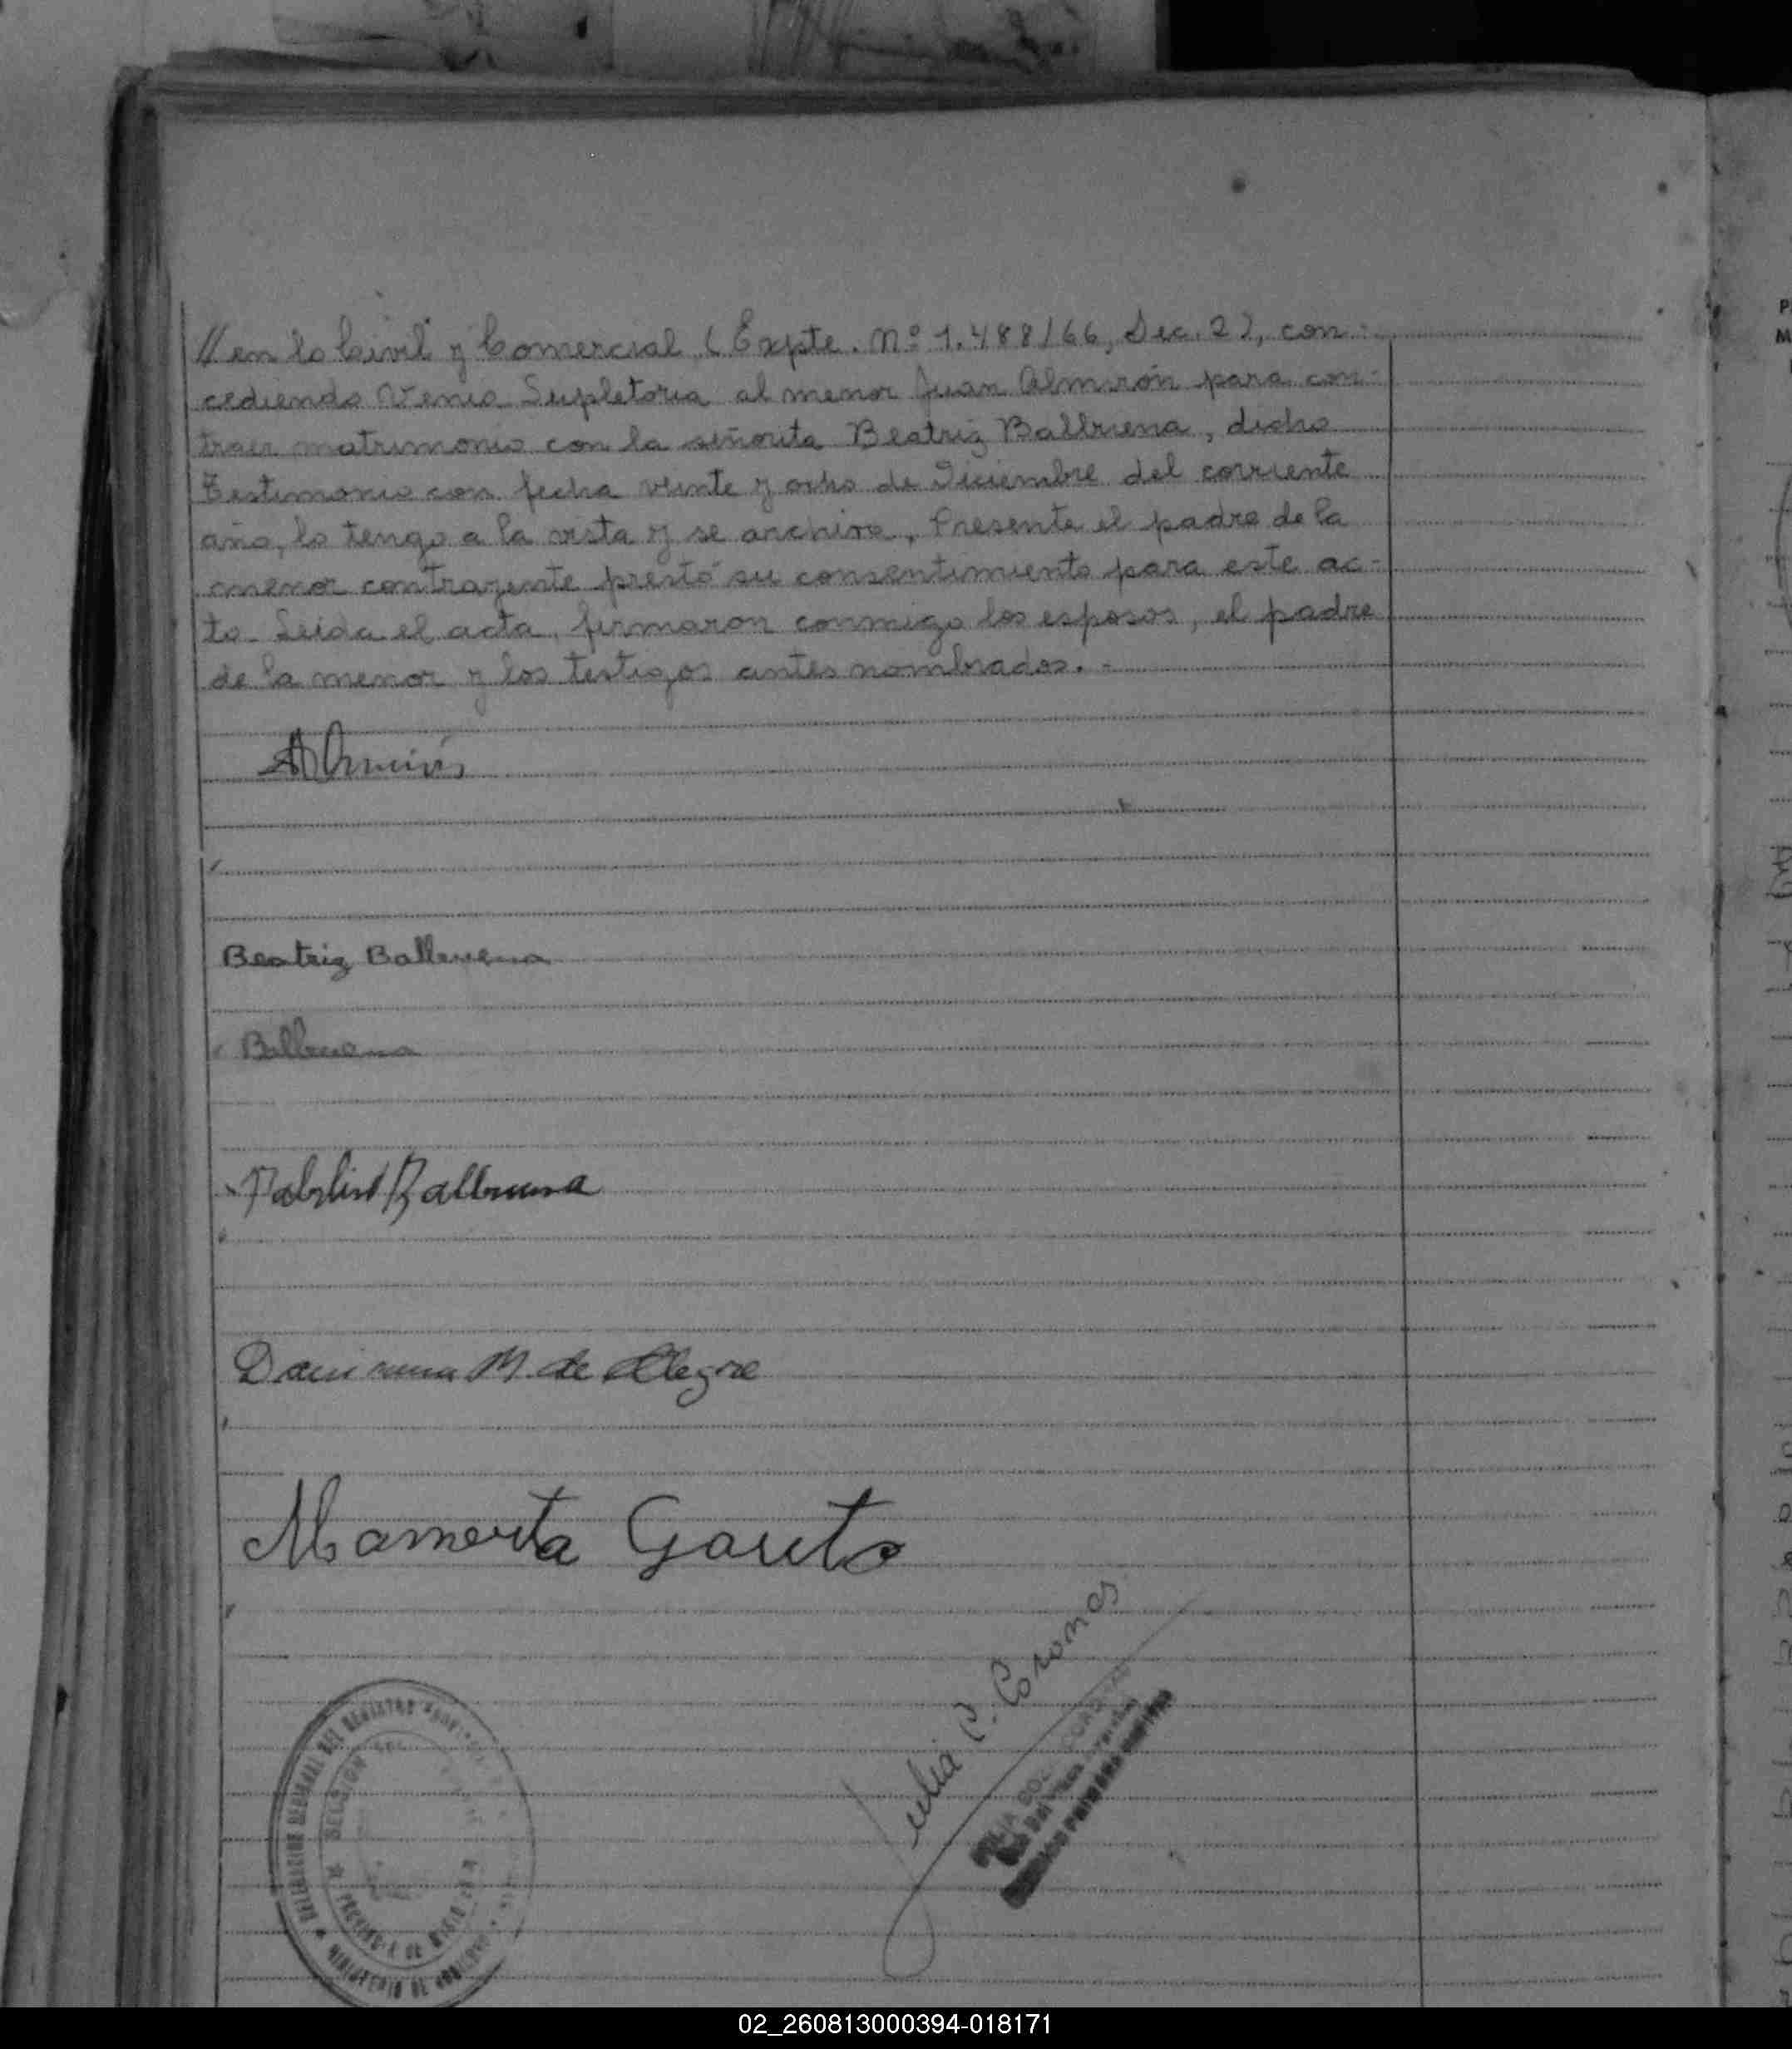 // en lo Civil y Comercial (Expte. Nº 1.488/66, Sec. 2), con-
cediendo Venia Supletoria al menor Juan Almirón para con-
traer matrimonio con la señorita Beatriz Balbuena, dicho
Testimonio con fecha veinte y ocho de Diciembre del corriente
año, lo tengo a la vista y se archiva. Presente el padre de la
menor contrayente prestó su consentimiento para este ac-
to. Leída el acta, firmaron conmigo los esposos, el padre
de la menor y los testigos antes nombrados. -
Almirón
Beatriz Balbuena
Balbuena
Balbuena
M. de Alegre
Mamerta Gauto
Julia C. Coronas
DELEGACION REGIONAL DEL REGISTRO
SECCION
PROVINCIA DE
MINISTERIO DE GOBIERNO
02_260813000394-018171